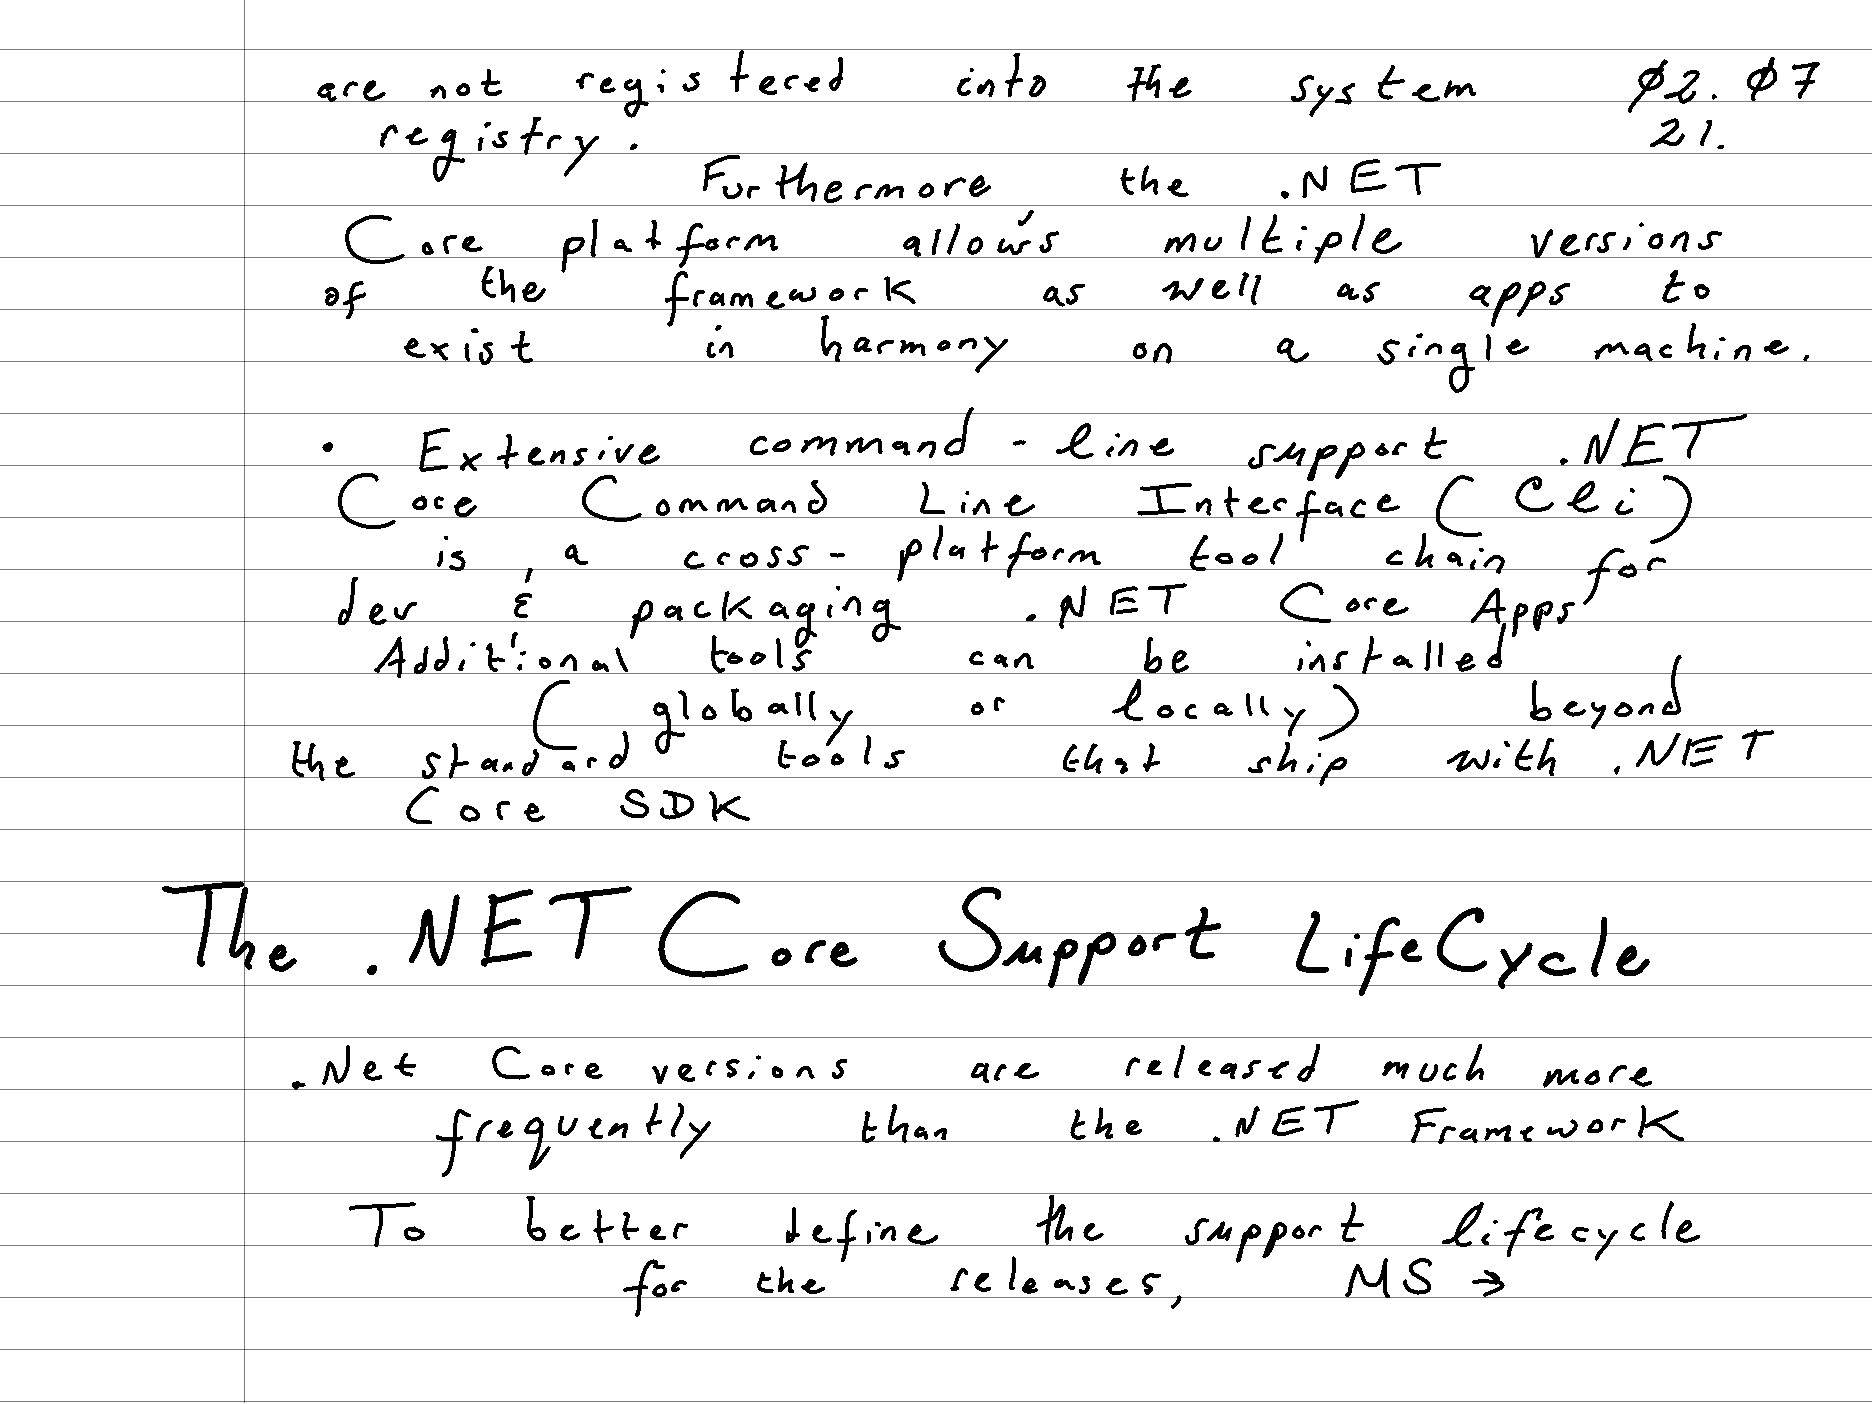 are not registered into the system Ø2. Ø7
registry. 21.
Furthermore the .NET
Core platform allows multiple versions
of the framework as well as apps to
exist in harmony on a single machine.
• Extensive command-line support .NET
Core Command Line Interface (Cli)
is a cross-platform tool chain for
dev & packaging .NET Core Apps
Additional tools can be installed
(globally or locally) beyond
the standard tools that ship with .NET
Core SDK
The .NET Core Support LifeCycle
.Net Core versions are released much more
frequently than the .NET Framework
To better define the support lifecycle
for the releases, MS →